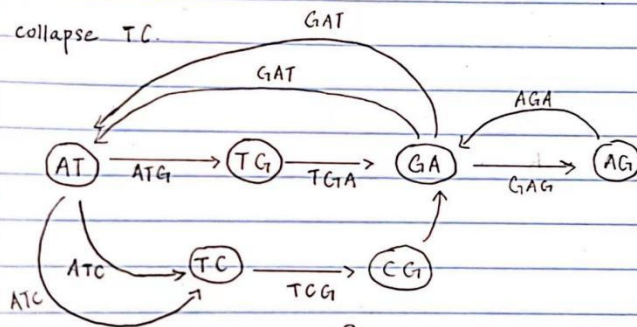 collapse TC.
GAT
GAT
AGA
AT ATG TG TGA GA GAG AG
ATC TC TCG CG
ATC